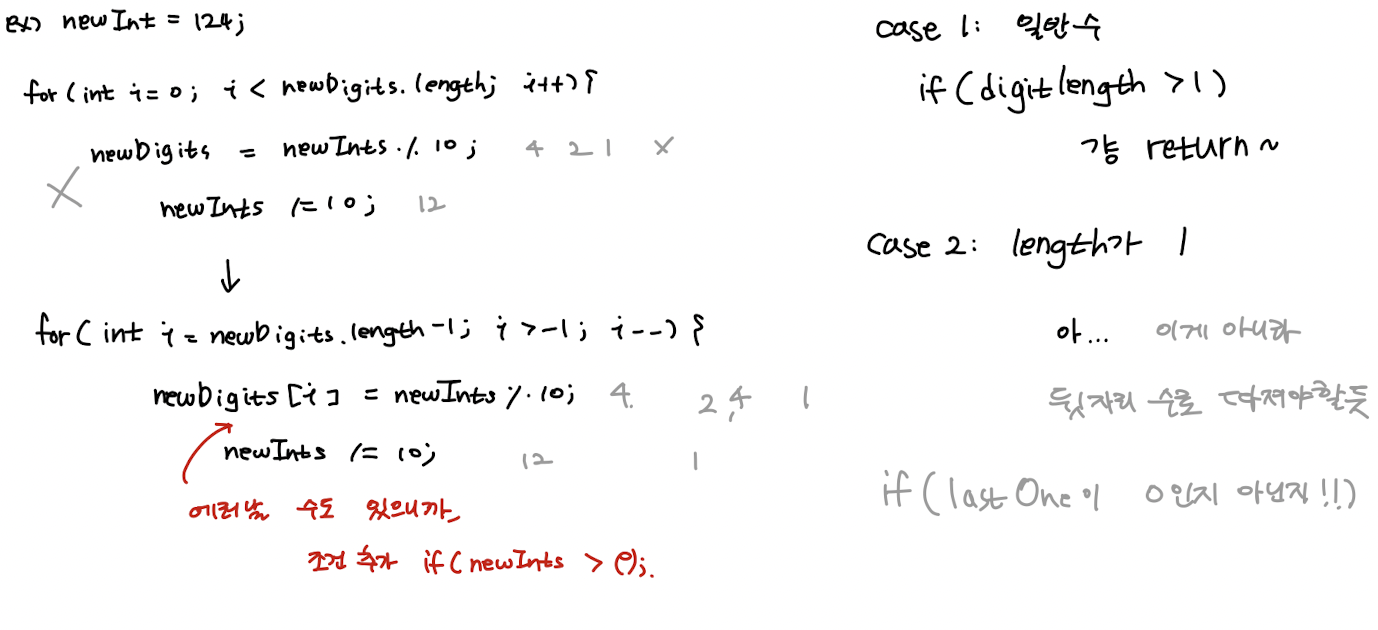 ex) newInt = 124;
for(int i=0; i < newDigits.length; i++){
newDigits = newInts % 10; 4 2 1 X
X
newInts /=10; 12
↓
for( int i = newDigits.length-1; i >-1; i--) {
newDigits[i] = newInts % 10; 4. 2,4 1
newInts /= 10; 12 1
에러날 수도 있으니까,
조건 추가 if(newInts > 0);.
case 1: 일반수
if(digitlength >1)
걍 return~
case 2: length가 1
아... 이게 아니라
뒷자리 수로 따져야할듯
if(lastOne이 0인지 아닌지!!)